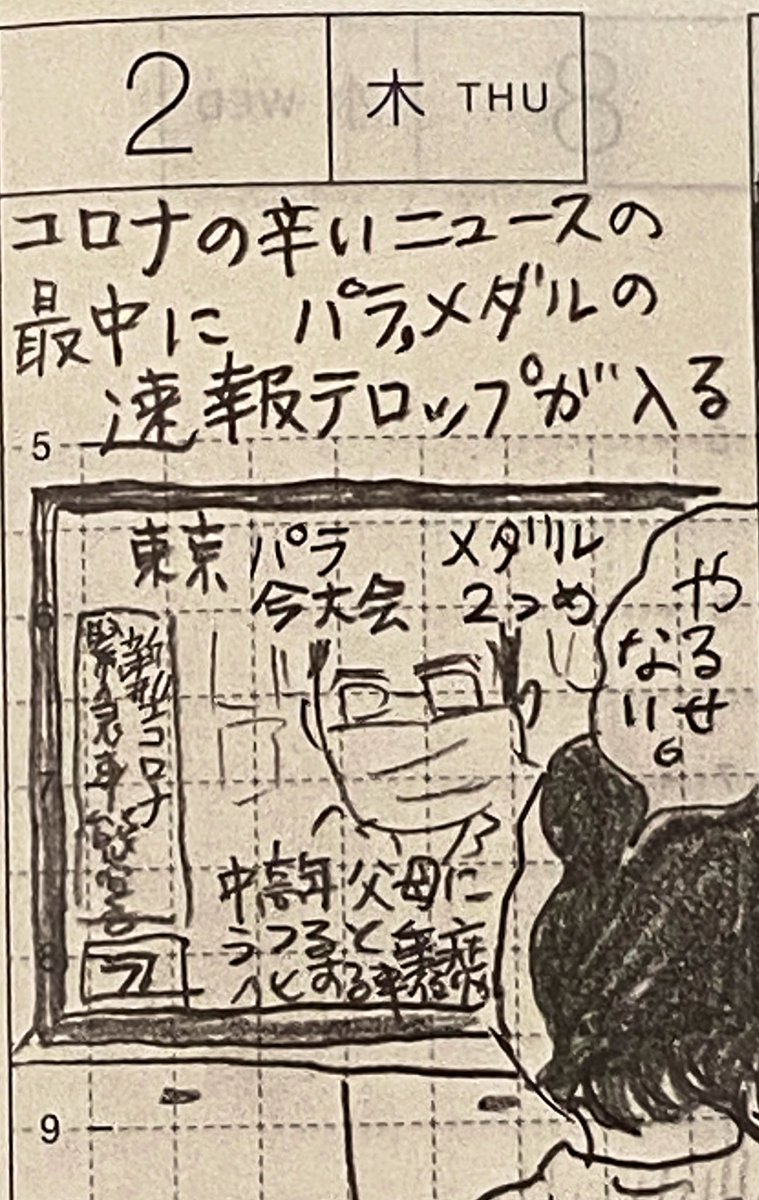 2 木 THU
コロナの辛いニュースの
最中に パラ,メダルの
速報テロップが入る
5
東京 パラ メダル
今大会 2つめ
やるせ
ない。
6
新型コロナ
緊急事態宣言
7
中高年 父母に
うつると
8
9